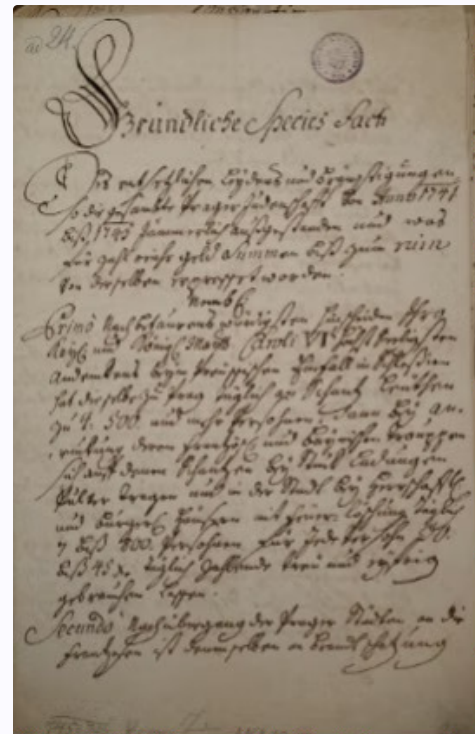 ad 24.
Gründliche Species Facti
Des entsetzlichen Leydens und Bekränckungen
so die gesambte Prager Judenschafft von Anno 1741
biß 1745 jämmerlich außgestanden und was
für geld Summen biß zum ruin
von derselben erpresset worden.
Nembl.
Primò Nach würdigsten Hinscheiden Ihro
Kayl. und Königl. Maytt. Caroli VI. höchst seeligsten
Andenckens beym Preussischen Einfall in Schlesien
hat dieselbe zu Prag täglich zu Schantz
zu 4. 500. und mehr Persohnen, dann bey An-
ruckung deren Frantzös. und Bayrischen trouppen
auff denen Schantzen bey Stuck
Pulver tragen und in der Stadt bey Herrschafftl.
und Bürgerl. Häusern mit Feuer-Löschung täglich
7 biß 800. Persohnen für jede Persohn 30.
biß 45 x. täglich zahlende treu und eyffrig
gebrauchen lassen.
Secundò Nach übergang der Prager Städten an die
Frantzosen ist denenselben an Brandschatzung